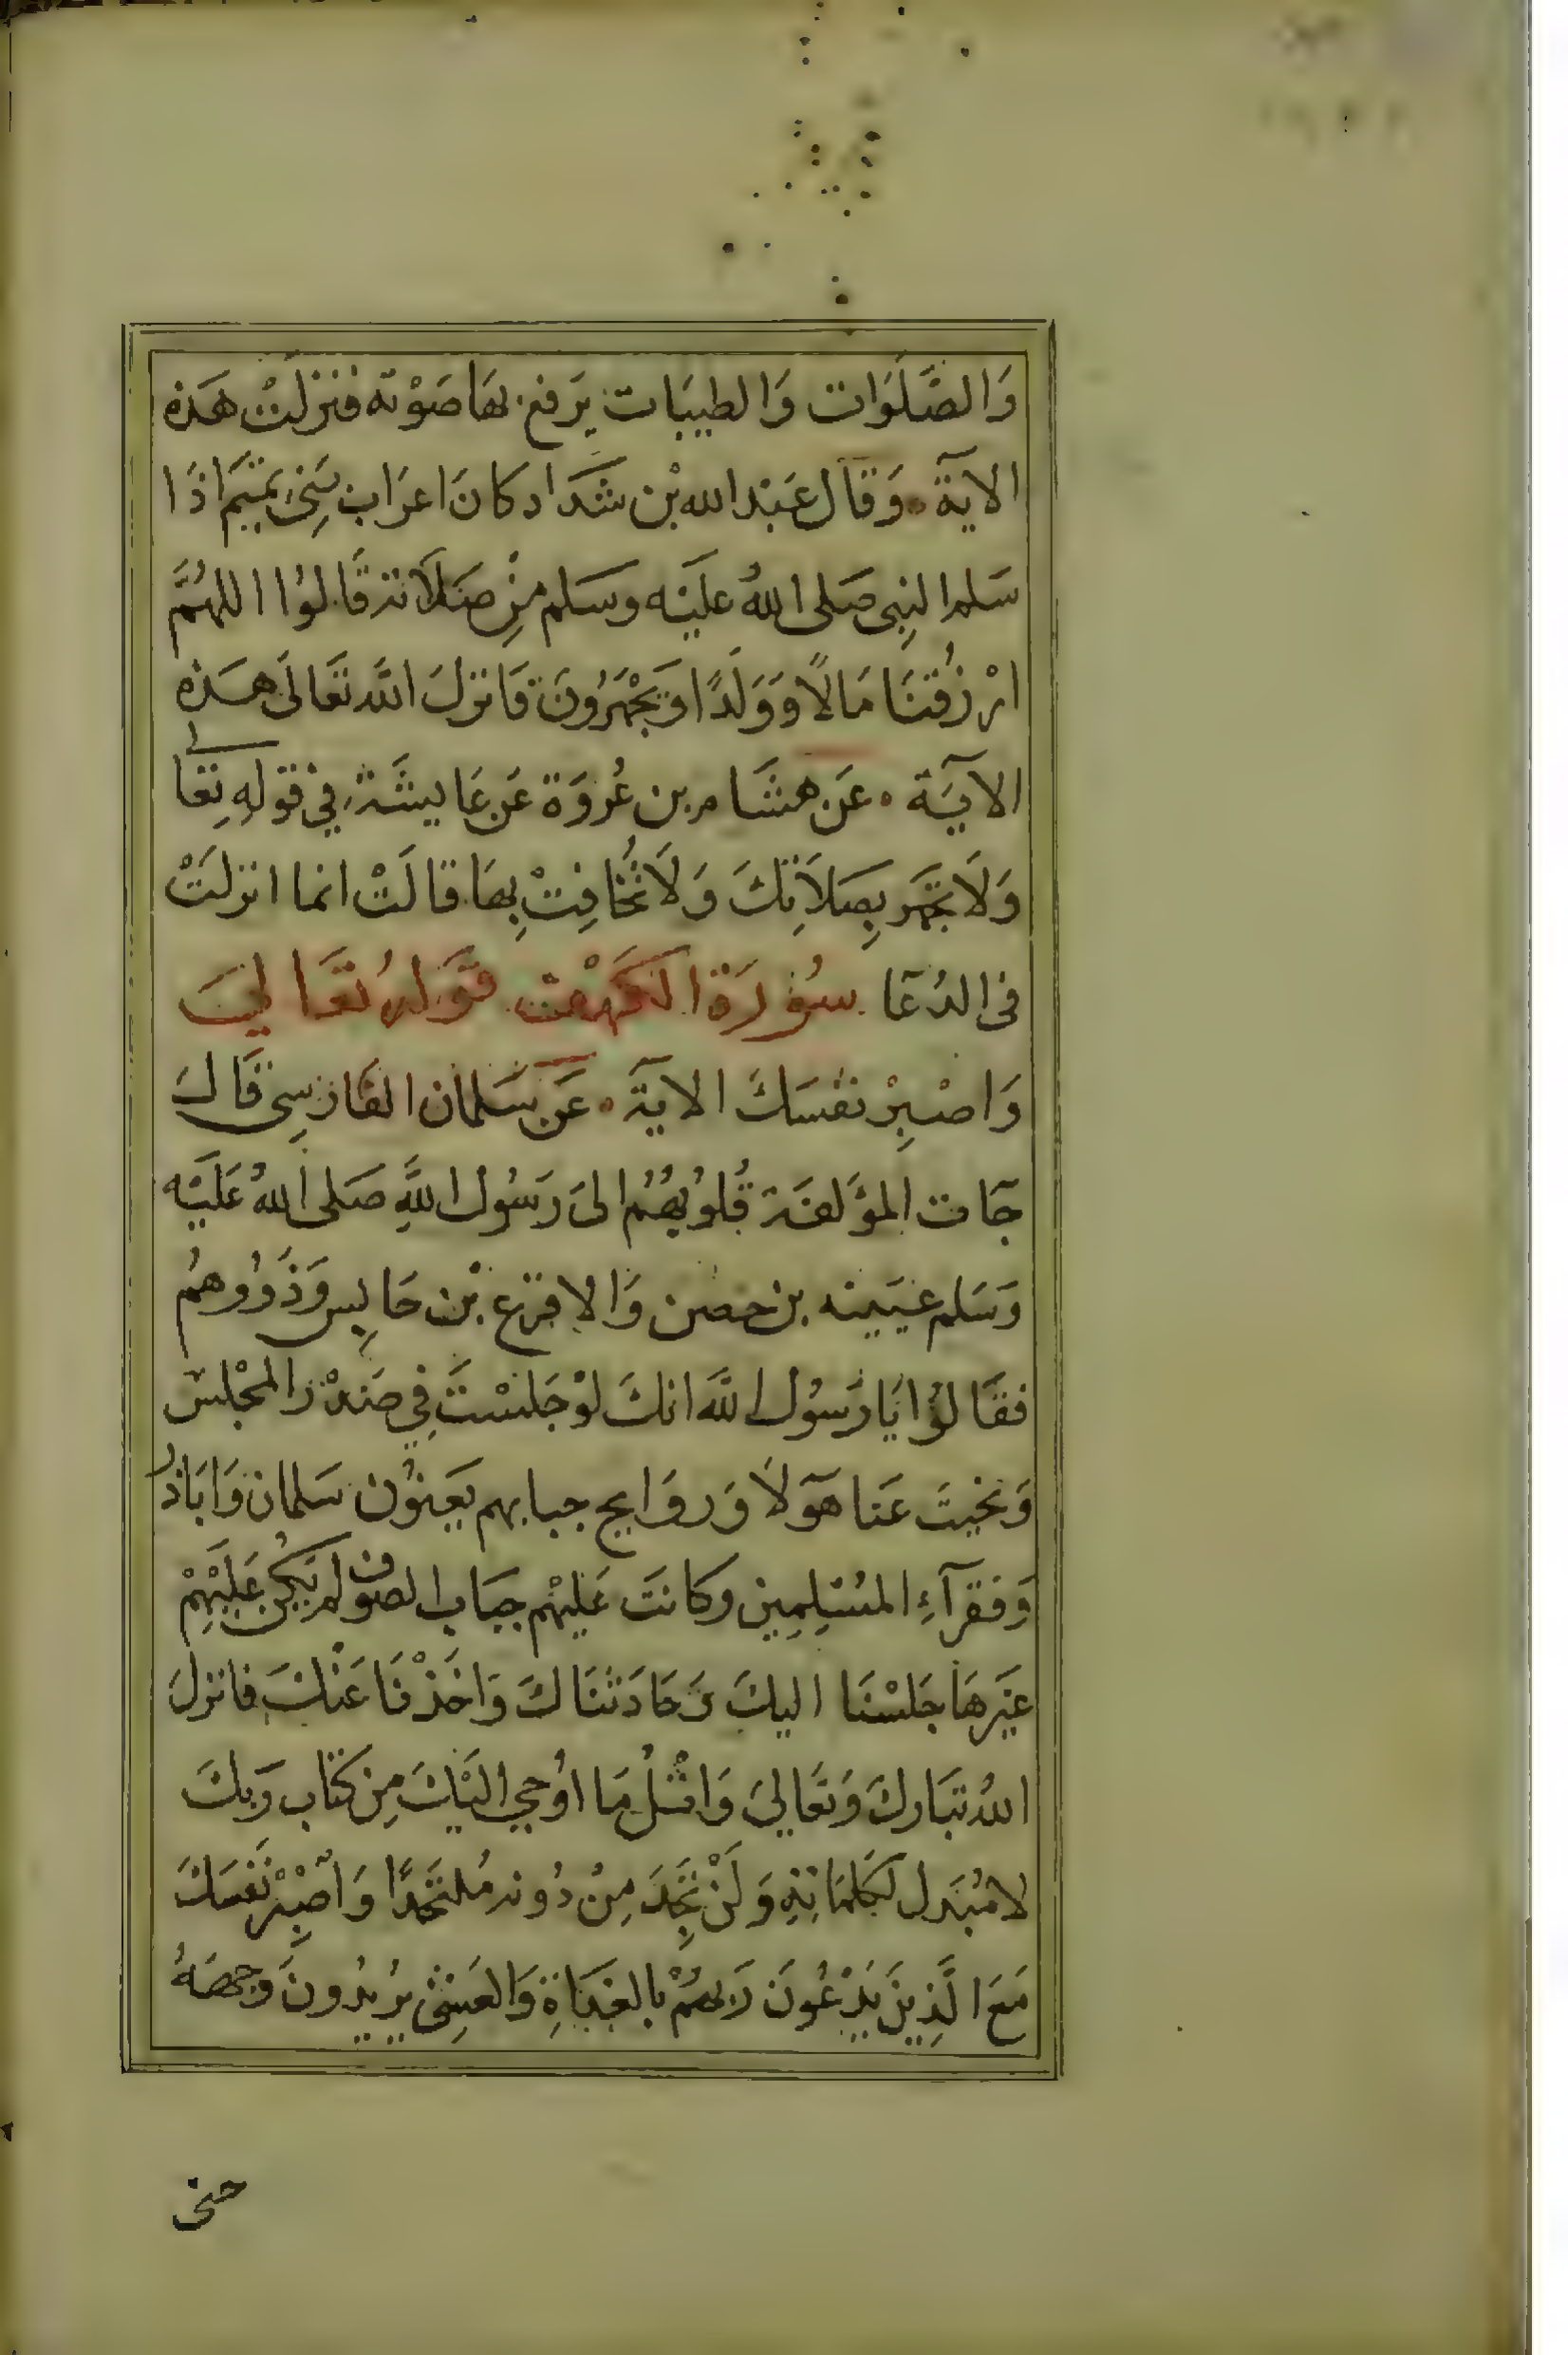 وَالصَّلَوَات وَالطيبَات يَرفع بهَا صَوْته فنزلَتْ هَذه
الآيَة وَقَال عَبْد الله بْن شدَاد كانَ اعرَاب بَنِي تمَيم اذَا
سَلم النبِى صَلى اللهُ عليَه وسَلم مِنْ صَلاَته قَالوُا اللهُمَّ
ارْزُقنَا مَالًا وَوَلَدًا وَيَجْهَرُونَ فَانزلَ اللَّه تعَالَى هـذه
الآيَة عَن هشَام بن عُروَة عَن عَايشَة فِي قوَله تِعَالى
وَلَا تجَهر بِصَلاَتِكَ وَلَا تُخَافِتْ بِهَا قالَتْ انما انزلَتْ
فى الدُعآ سُورَة الكَهْف قوَلهُ تعَاليَ
وَاصْبِرْ نفسَكَ الآية عَن سَلمان الفَارسِى قَالَ
جَآت المؤَلفَة قُلوُبهُمُ الىَ رَسُول اللَّهِ صَلى اللهُ عَليَه
وَسَلم عيَينه بن حصن وَالاقرَع بْن حَابِس وَذَوُوهمُ
فقَالوُا يَا رَسُول اللَّه انكَ لوْ جَلسْتَ فِي صَدْر المجْلس
وَنحيتَ عَنا هَوٓلَا وَروَايح جبابهم يَعنوُن سَلمان وَابَاذر
وَفقرآءِ المسُلِمِين وكانتَ عَليْهم جبَاب الصوف لم يَكنُ عَليَهِمْ
غيَرهَا جَلسْنَا اليكَ وَحَادَثنَاكَ وَاخَذْنَا عَنْكَ فانزلَ
اللهُ تبَاركَ وَتعَاليَ وَاتْلُ مَا اوُحِي اليَكَ مِن كتَاب رَبكَ
لا مُبَدل لِكَلمَاتِهِ وَلَنْ تَجِدَ مِنْ دُونه مُلتَحَدًا وَاصْبِرْ نَفسَكَ
مَعَ الَّذِينَ يَدْعُونَ رَبهُمْ بالغدَاةِ وَالعَشِيِّ يرُيدُونَ وَجهَهُ
حتى